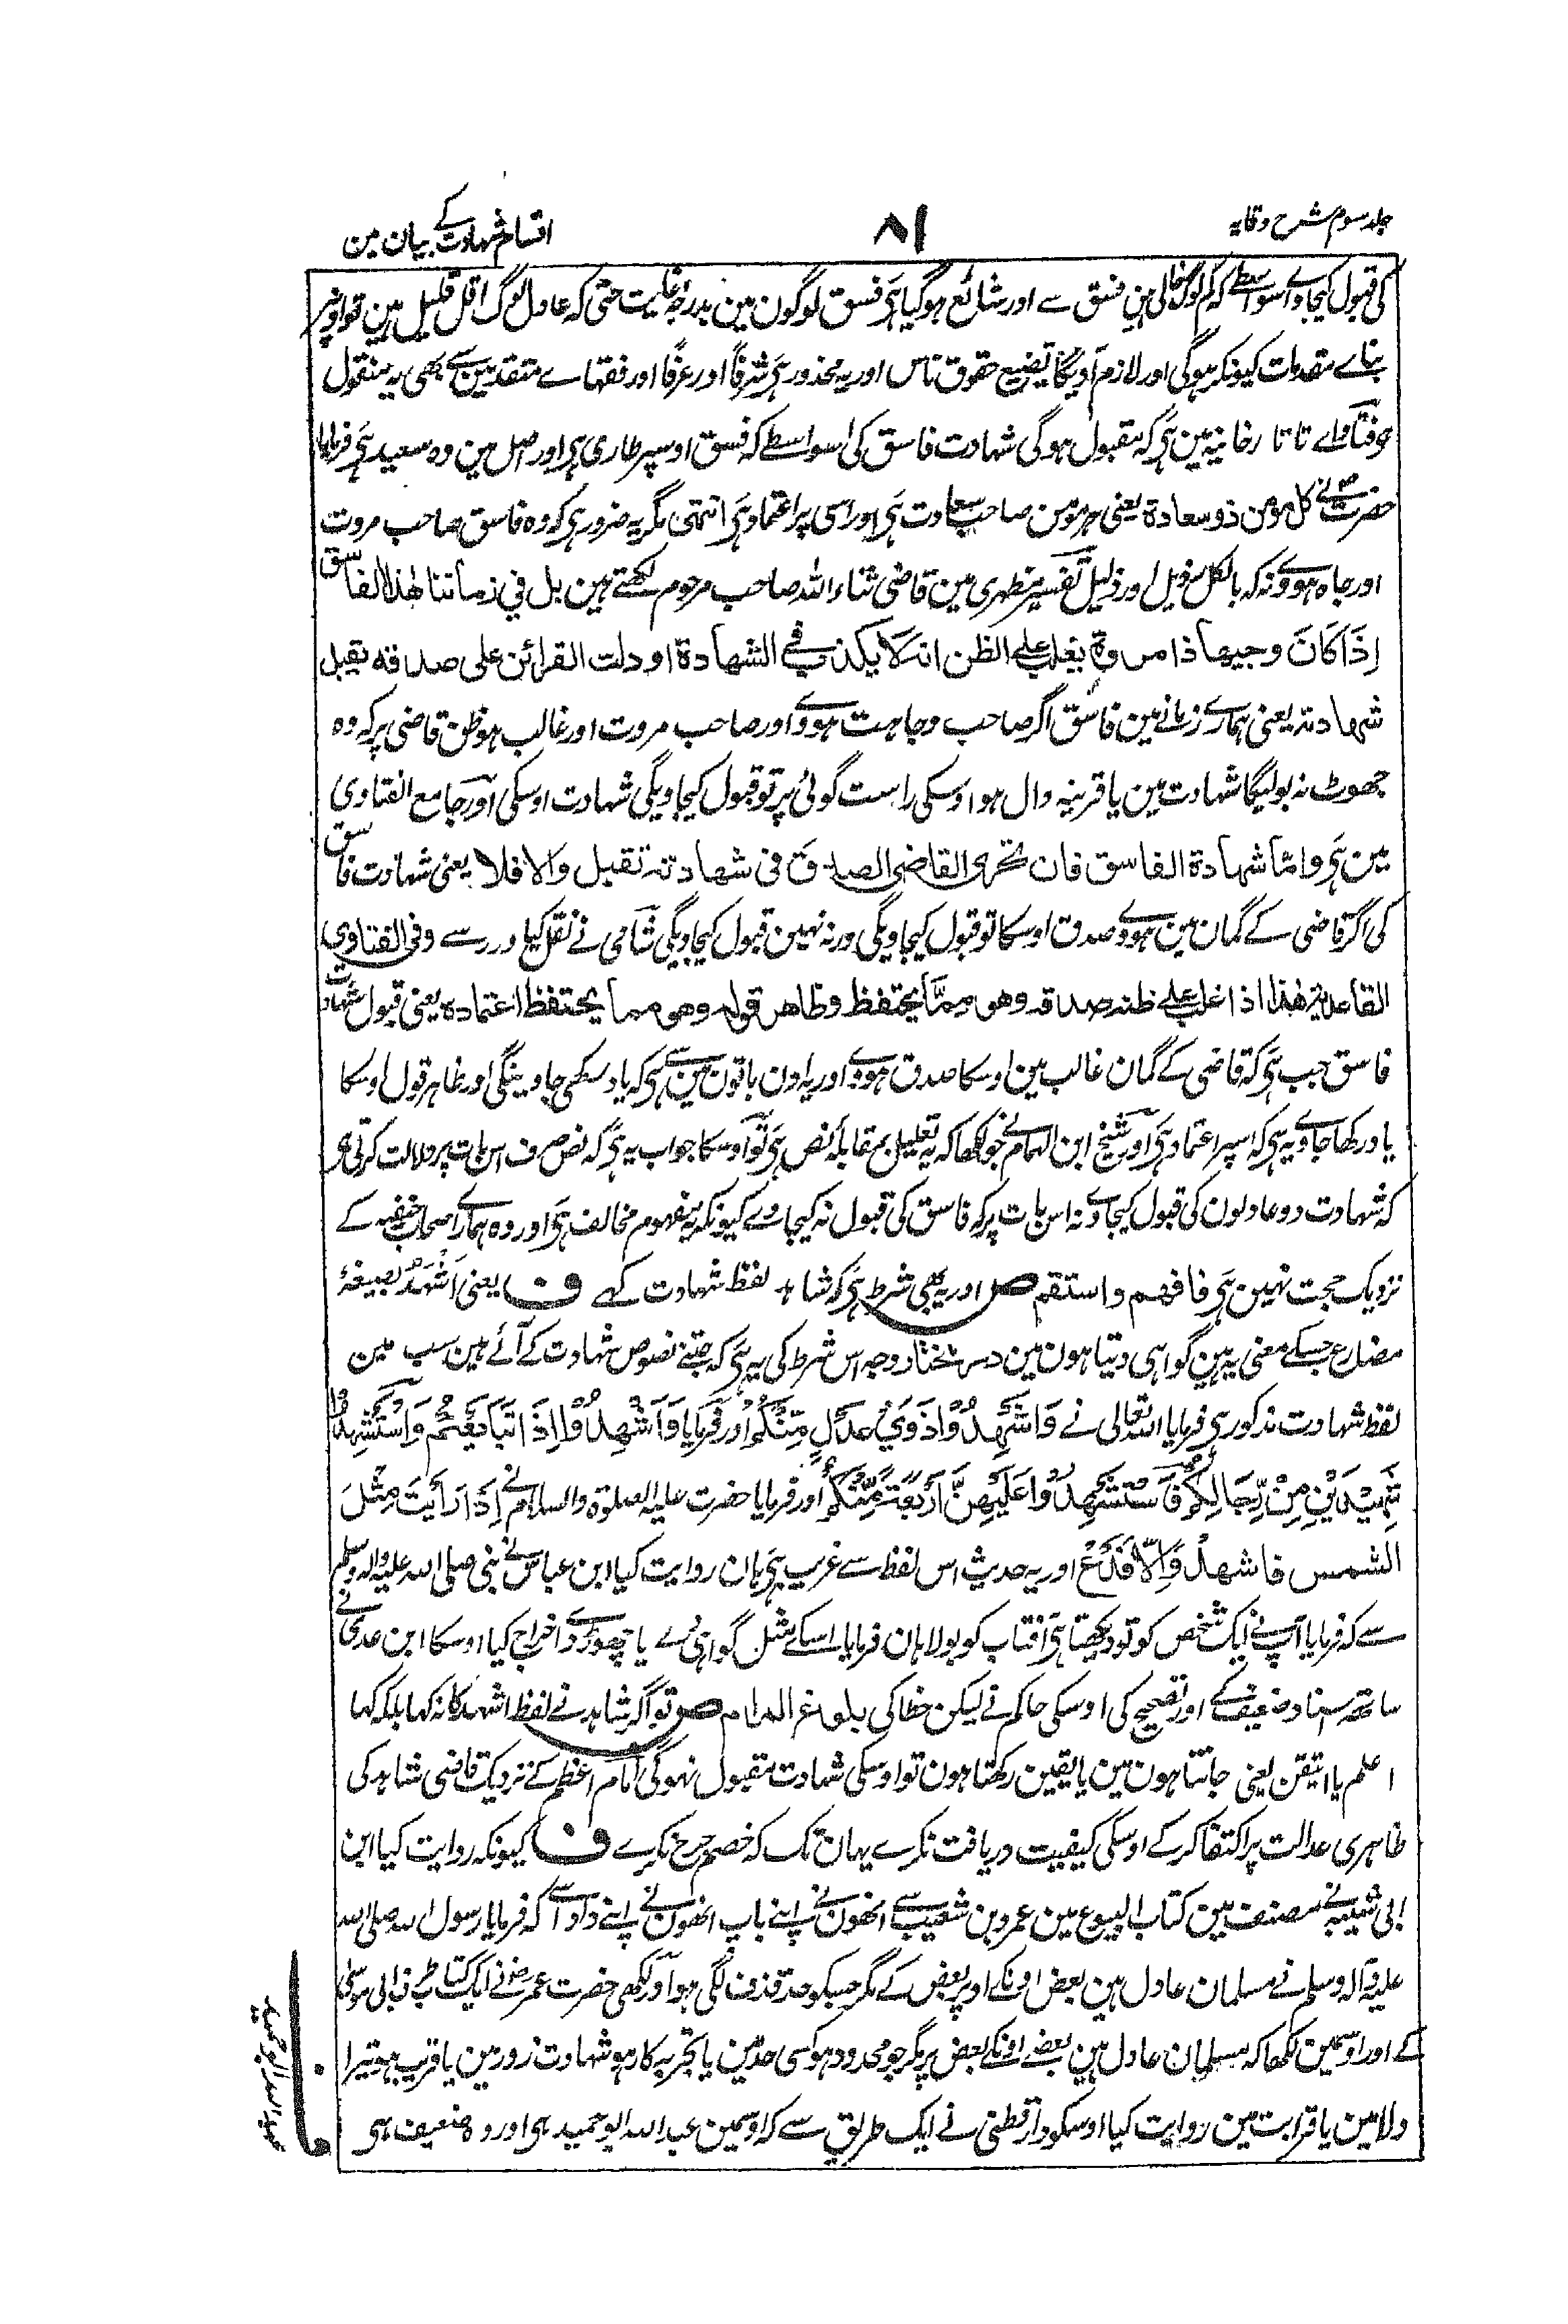 جلد سوم شرح وقایہ
۸۱
اقسام شہادت کے بیان مین
کی قبول کیجاوے اسواسطے کہ کم لوگ خالی ہین فسق سے اور شائع ہوگیا ہی فسق لوگون مین بدرجۂ غایت حتی کہ عادل لوگ اقل قلیل ہین تو اونپر
بناے مقدمات کیونکر ہوگی اور لازم آویگا تضییع حقوق ناس اور یہ محذور ہی شرعًا اور عرفًا اور فقہاے متقدمین سے بھی یہ منقول
ہو فتاواے تاتارخانیہ مین ہی کہ مقبول ہوگی شہادت فاسق کی اسواسطے کہ فسق اوسپر طاری ہی اور اصل مین وہ سعید ہی فرمایا
حضرت نے کل مؤمن ذو سعادة یعنی ہر مومن صاحب سعادت ہی اور اسی پر اعتماد ہی انتہی مگر یہ ضرور ہی کہ وہ فاسق صاحب مروت
اور جاہ ہووے نہ کہ بالکل رذیل اور ذلیل تفسیر مظہری مین قاضی ثناء اللہ صاحب مرحوم لکھتے ہین بل في زماننا هذا الفاسق
إذا كان وجيها ذا مروة يغلب على الظن انه لا يكذب في الشهادة او دلت القرائن على صداقه يقبل
شهادته یعنی ہمارے زمانے مین فاسق اگر صاحب وجاہت ہووے اور صاحب مروت اور غالب ہو ظن قاضی پر کہ وہ
جھوٹ نہ بولیگا شہادت مین یا قرینہ دال ہو اوسکی راست گوئی پر تو قبول کیجاویگی شہادت اوسکی اور جامع الفتاوی
مین ہی واما شهادة الفاسق فان تحرى القاضى الصدق فى شهادته تقبل والا فلا یعنی شہادت فاسق
کی اگر قاضی کے گمان مین ہووے صدق اوسکا تو قبول کیجاویگی ورنہ نہین قبول کیجاویگی شامی نے نقل کیا درر سے وفى الفتاوى
القاعدية هذا اذا غلب على ظنه صدقه وهو مما يحتفظ وظاهر قوله وهو مما يحتفظ اعتماده یعنی قبول شہادت
فاسق جب ہی کہ قاضی کے گمان غالب مین اوسکا صدق ہووے اور یہ اون باتون مین سے ہی کہ یاد رکھی جاوینگی اور ظاہر قول اوسکا
یاد رکھا جاوے یہ ہی کہ اسپر اعتماد ہی اور شیخ ابن الہمام نے جو لکھا کہ یہ تعلیل بمقابلۂ نص ہی تو اوسکا جواب یہ ہی کہ نص صرف اس بات پر دلالت کرتی ہی
کہ شہادت دو عادلون کی قبول کیجاوے نہ اس بات پر کہ فاسق کی قبول نہ کیجاوے کیونکہ یہ مفہوم مخالف ہی اور وہ ہمارے اصحاب حنفیہ کے
نزدیک حجت نہین ہی فافهم واستقم ص اور یہ بھی شرط ہی کہ شاہد لفظ شہادت کہے ف یعنی اَشْهَدُ بصیغۂ
مضارع جسکے معنی یہ ہین گواہی دیتا ہون مین درمختار وجہ اس شرط کی یہ ہی کہ جتنے نصوص شہادت کے آئے ہین سب مین
لفظ شہادت مذکور ہی فرمایا اللہ تعالی نے وَاَشْهِدُوْا ذَوَيْ عَدْلٍ مِّنْكُمْ اور فرمایا وَاَشْهِدُوْا اِذَا تَبَايَعْتُمْ وَاسْتَشْهِدُوْا
شَهِيْدَيْنِ مِنْ رِّجَالِكُمْ فَاسْتَشْهِدُوْا عَلَيْهِنَّ اَرْبَعَةً مِّنْكُمْ اور فرمایا حضرت علیہ الصلوة والسلام نے اِذَا رَاَيْتَ مِثْلَ
الشمس فاشهد وَاِلَّا فَدَعْ اور یہ حدیث اس لفظ سے غریب ہی ہان روایت کیا ابن عباس نے نبی صلی اللہ علیہ وآلہ وسلم
سے کہ فرمایا آپ نے ایک شخص کو تو دیکھتا ہی آفتاب کو بولا ہان فرمایا اسکے مثل گواہی دے یا چھوڑ دے اخراج کیا اوسکا ابن عدی نے
ساتھ اسناد ضعیف کے اور تصحیح کی اوسکی حاکم نے لیکن خطا کی بلوغ المرام ص تو اگر شاہد نے لفظ اشہد کا نہ کہا بلکہ کہا
اعلم یا اتیقن یعنی جانتا ہون مین یا یقین رکھتا ہون تو اوسکی شہادت مقبول نہوگی امام اعظم کے نزدیک قاضی شاہد کی
ظاہری عدالت پر اکتفا کر کے اوسکی کیفیت دریافت نکرے یہان تک کہ خصم جرح نکرے ف کیونکہ روایت کیا ابن
ابی شیبہ نے مصنف مین کتاب البیوع مین عمرو بن شعیب سے انھون نے اپنے باپ انھون نے اپنے دادا سے کہ فرمایا رسول اللہ صلی اللہ
علیہ وآلہ وسلم نے مسلمان عادل ہین بعض اونکے اوپر بعض کے مگر جسکو حد قذف لگی ہو اور لکھی حضرت عمر رض نے ایک کتاب طرف ابی موسی
کے اور اوسمین لکھا کہ مسلمان عادل ہین بعضے اونکے بعض پر مگر جو محدود ہو کسی حد مین یا تجربہ کار ہو شہادت زور مین یا قریب ہو تیرا
ولا مین یا قرابت مین روایت کیا اوسکو دارقطنی نے ایک طریق سے کہ اوسمین عبد اللہ ابو حمید ہی اور وہ ضعیف ہی